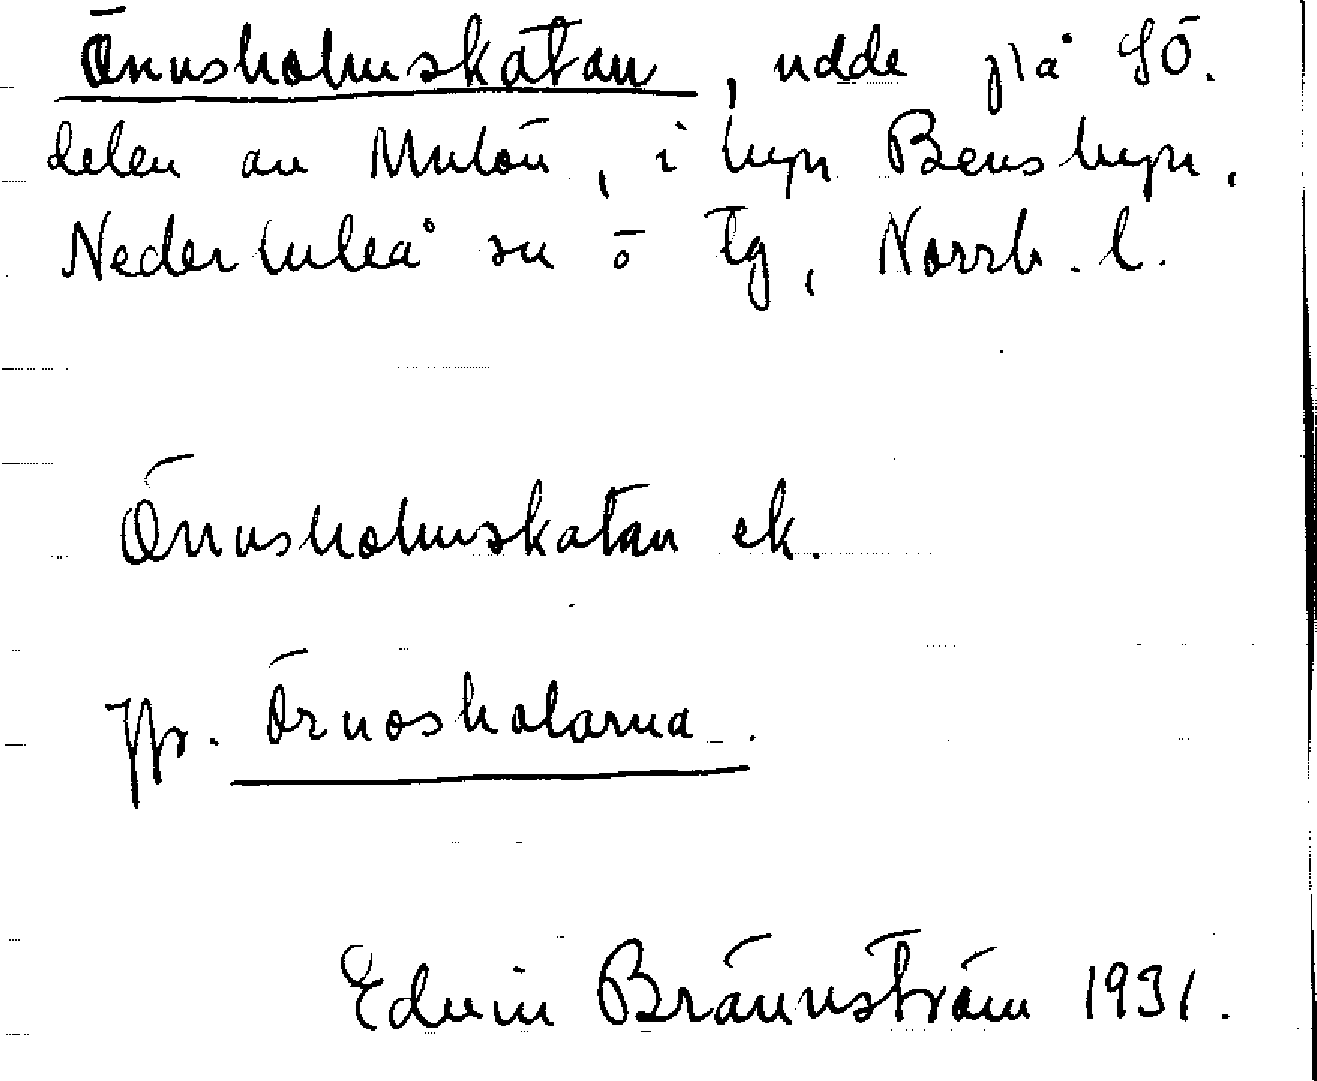 Önnusholmskatan, udde på SÖ.
delen av Mulön, i byn Bensbyn,
Nederluleå sn ö tg, Norrb. l.
Önnusholmskatan ek.
Jfr. Örnosholarna.
Edvin Brännström 1931.